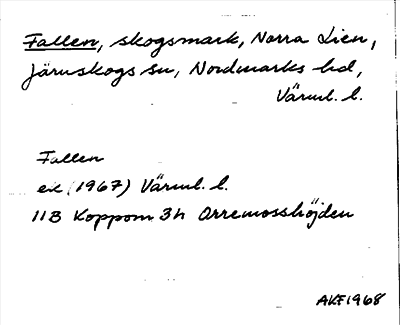 Fallen, skogsmark, Norra Lien,
Järnskogs sn, Nordmarks hd,
Värml. l.
Fallen
ek (1967) Värml. l.
11B Koppom 3h Orremosshöjden
AKF1968